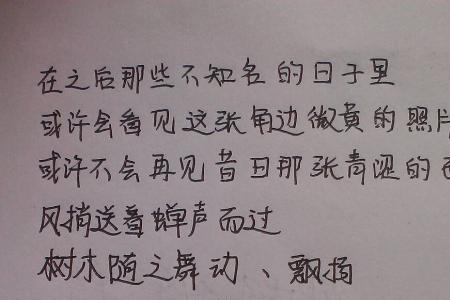 在之后那些不知名的日子里
或许会看见这张角边微黄的照片
或许不会再见昔日那张青涩的
风捎送着蝉声而过
树木随之舞动、飘摇